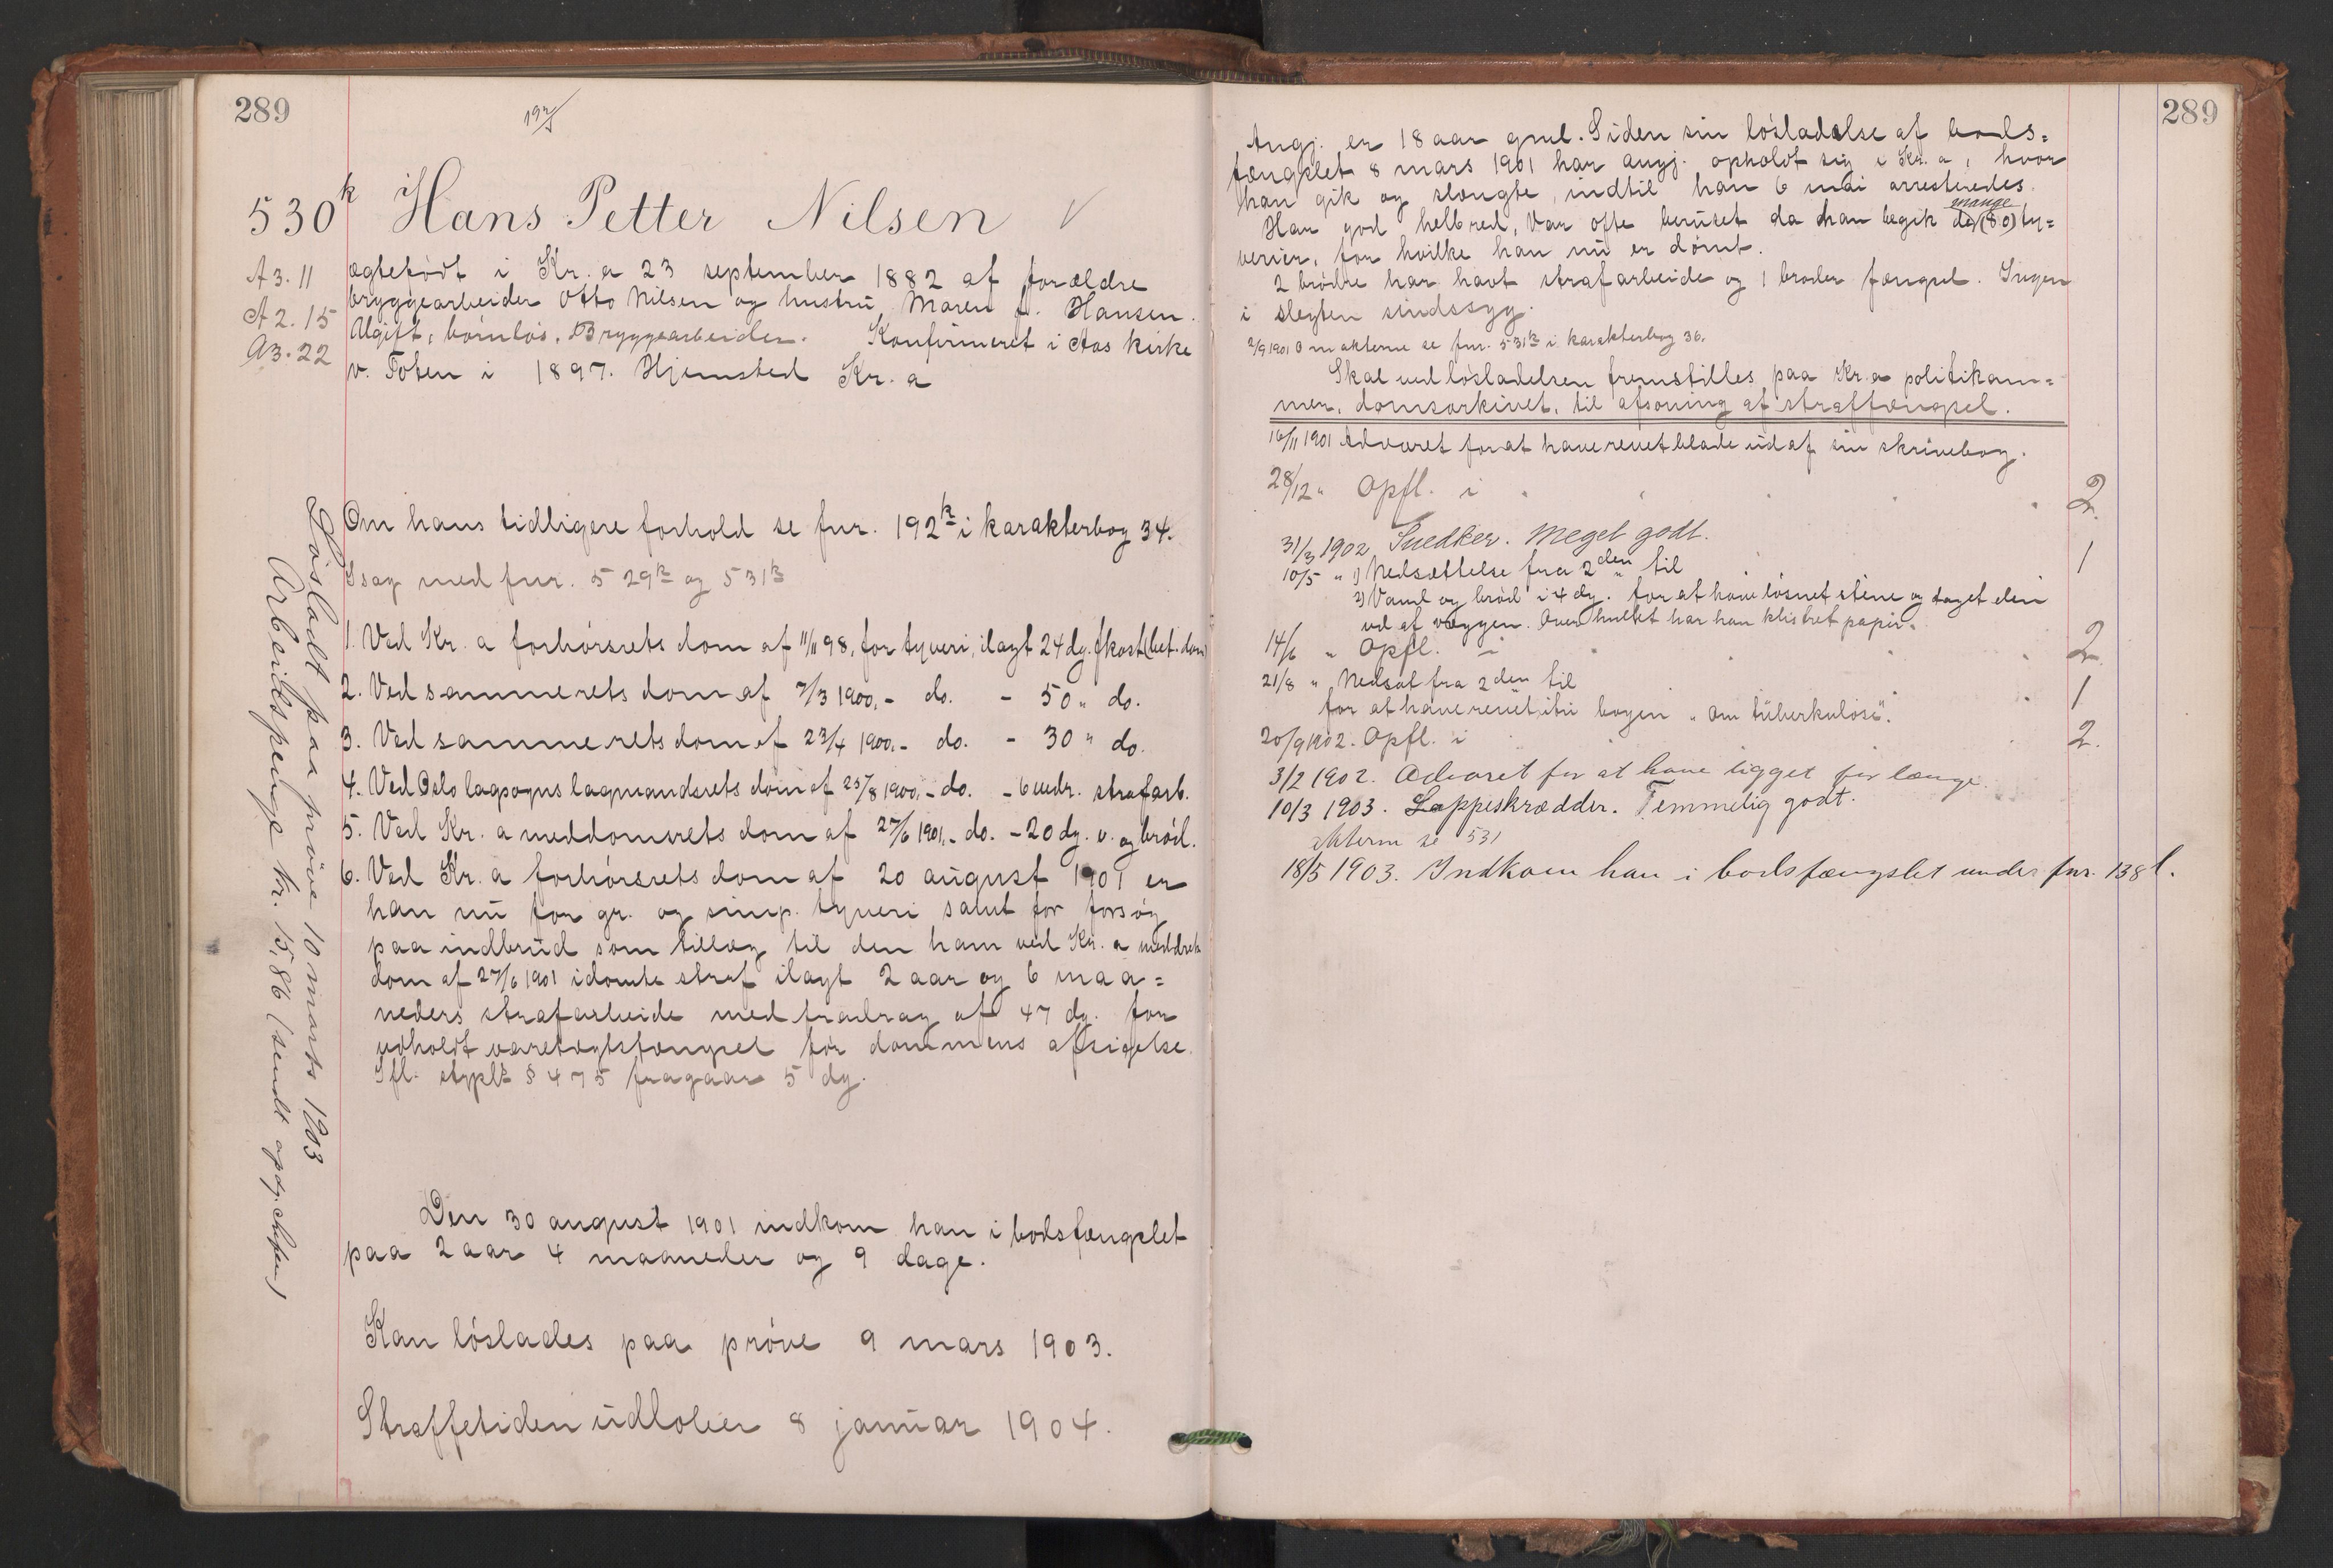 289
192/J
530k Hans Petter Nilsen V
A3.11
A2.15
A3.22
ægtefødt i Kr.a 23 september 1882 af forældre
bryggearbeider Otto Nilsen og hustru Maren f. Hansen.
Ugift, barnløs. Bryggearbeider. Konfirmeret i Aas kirke
v. Toten i 1897. Hjemsted Kr.a
Om hans tidligere forhold se fnr. 192k i karakterbog 34.
I sag med fnr. 529k og 531k
1. Ved Kr.a forhørsrets dom af 11/11 98, for tyveri, ilagt 24 dg. fkost (bet. dom)
2. Ved samme rets dom af 7/3 1900, - do. - 50 " do.
3. Ved samme rets dom af 23/4 1900, - do. - 30 " do.
4. Ved Oslo lagsogns lagmandsrets dom af 25/8 1900, - do. - 6 mdr. strafarb.
5. Ved Kr.a meddomsrets dom af 27/6 1901, - do. - 20 dg. v. og brød.
6. Ved Kr.a forhørsrets dom af 20 august 1901 er
han nu for gr. og simp. tyveri samt for forsøg
paa indbrud som tillæg til den ham ved Kr.a meddrets
dom af 27/6 1901 idømte straf ilagt 2 aar og 6 maa=
neders strafarbeide med fradrag af 47 dg. for
udholdt varetægtsfængsel før dommens afsigelse.
Ifl. stpl. § 475 fragaar 5 dg.
Den 30 august 1901 indkom han i bodsfængslet
paa 2 aar 4 maaneder og 9 dage.
Kan løslades paa prøve 9 mars 1903.
Straffetiden udløber 8 januar 1904.
Løsladt paa prøve 10 marts 1903
Arbeidspenge kr. 15,86 (sendt opdg.chefen)
289
Angj. er 18 aar gml. Siden sin løsladelse af bods=
fængslet 8 mars 1901 har angj. opholdt sig i Kr.a, hvor
han gik og slængte, indtil han 6 mai arresteredes.
Har god helbred. Var ofte beruset da han begik de mange (80) ty=
verier, for hvilke han nu er dømt.
2 brødre har havt strafarbeide og 1 broder fængsel. Ingen
i slegten sindssyg.
2/9 1901 Om akterne se fnr. 531k i karakterbog 36.
Skal ved løsladelsen fremstilles paa Kr.a politikam=
mer, domsarkivet, til afsoning af straffængsel.
16/11 1901 Advaret for at have revet blade ud af sin skrivebog.
28/12 " Opfl. i 2.
31/3 1902 Snedker. Meget godt.
10/5 " 1) Nedsættelse fra 2den til 1
2) Vand og brød i 4 dg. for at have løsnet stene og taget den
ud af væggen. Over hullet har han klistret papir.
14/6 " Opfl. i 2
21/8 " Nedsat fra 2den til 1
for at have revet itu bogen "Om tuberkulose".
20/9 1902. Opfl. i 2.
3/2 1902. Advaret for at have ligget for længe.
10/3 1903. Lappeskrædder. Temmelig godt.
Akterne se 531
18/5 1903. Indkom han i bodsfængslet under fnr. 138 l.